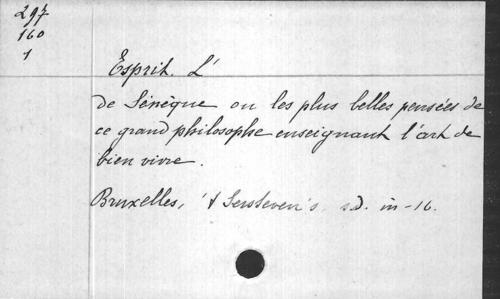 297
160
1
Esprit. L'
de Sénèque ou les plus belles pensées de
ce grand philosophe enseignant l'art de
bien vivre.
Bruxelles, 't Serstevens. sd. in-16.